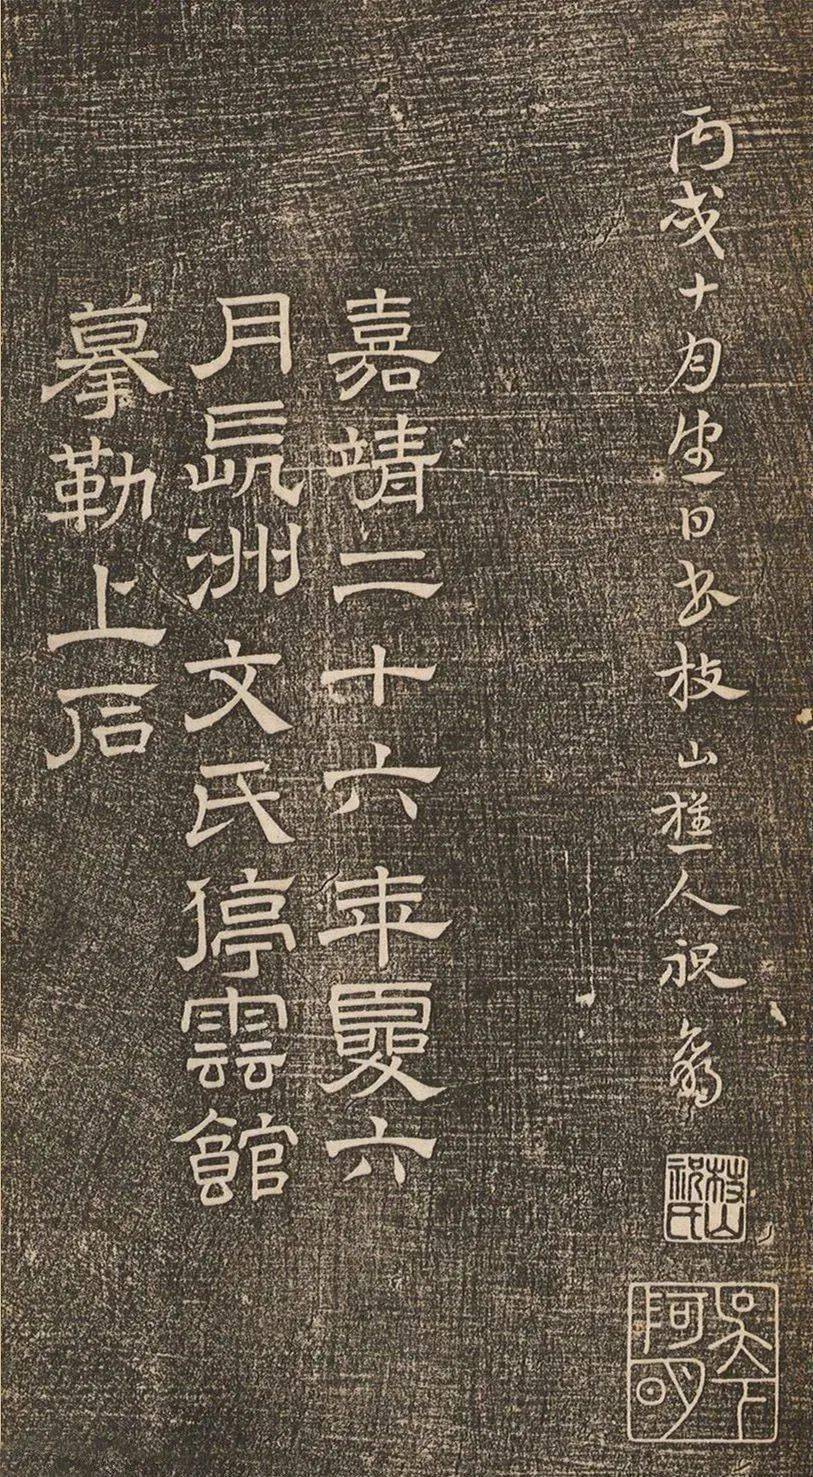 丙戌十月望日書枝山樵人祝翁
枝山祝氏
吳下阿明
嘉靖二十六年夏六
月長洲文氏停雲館
摹勒上石